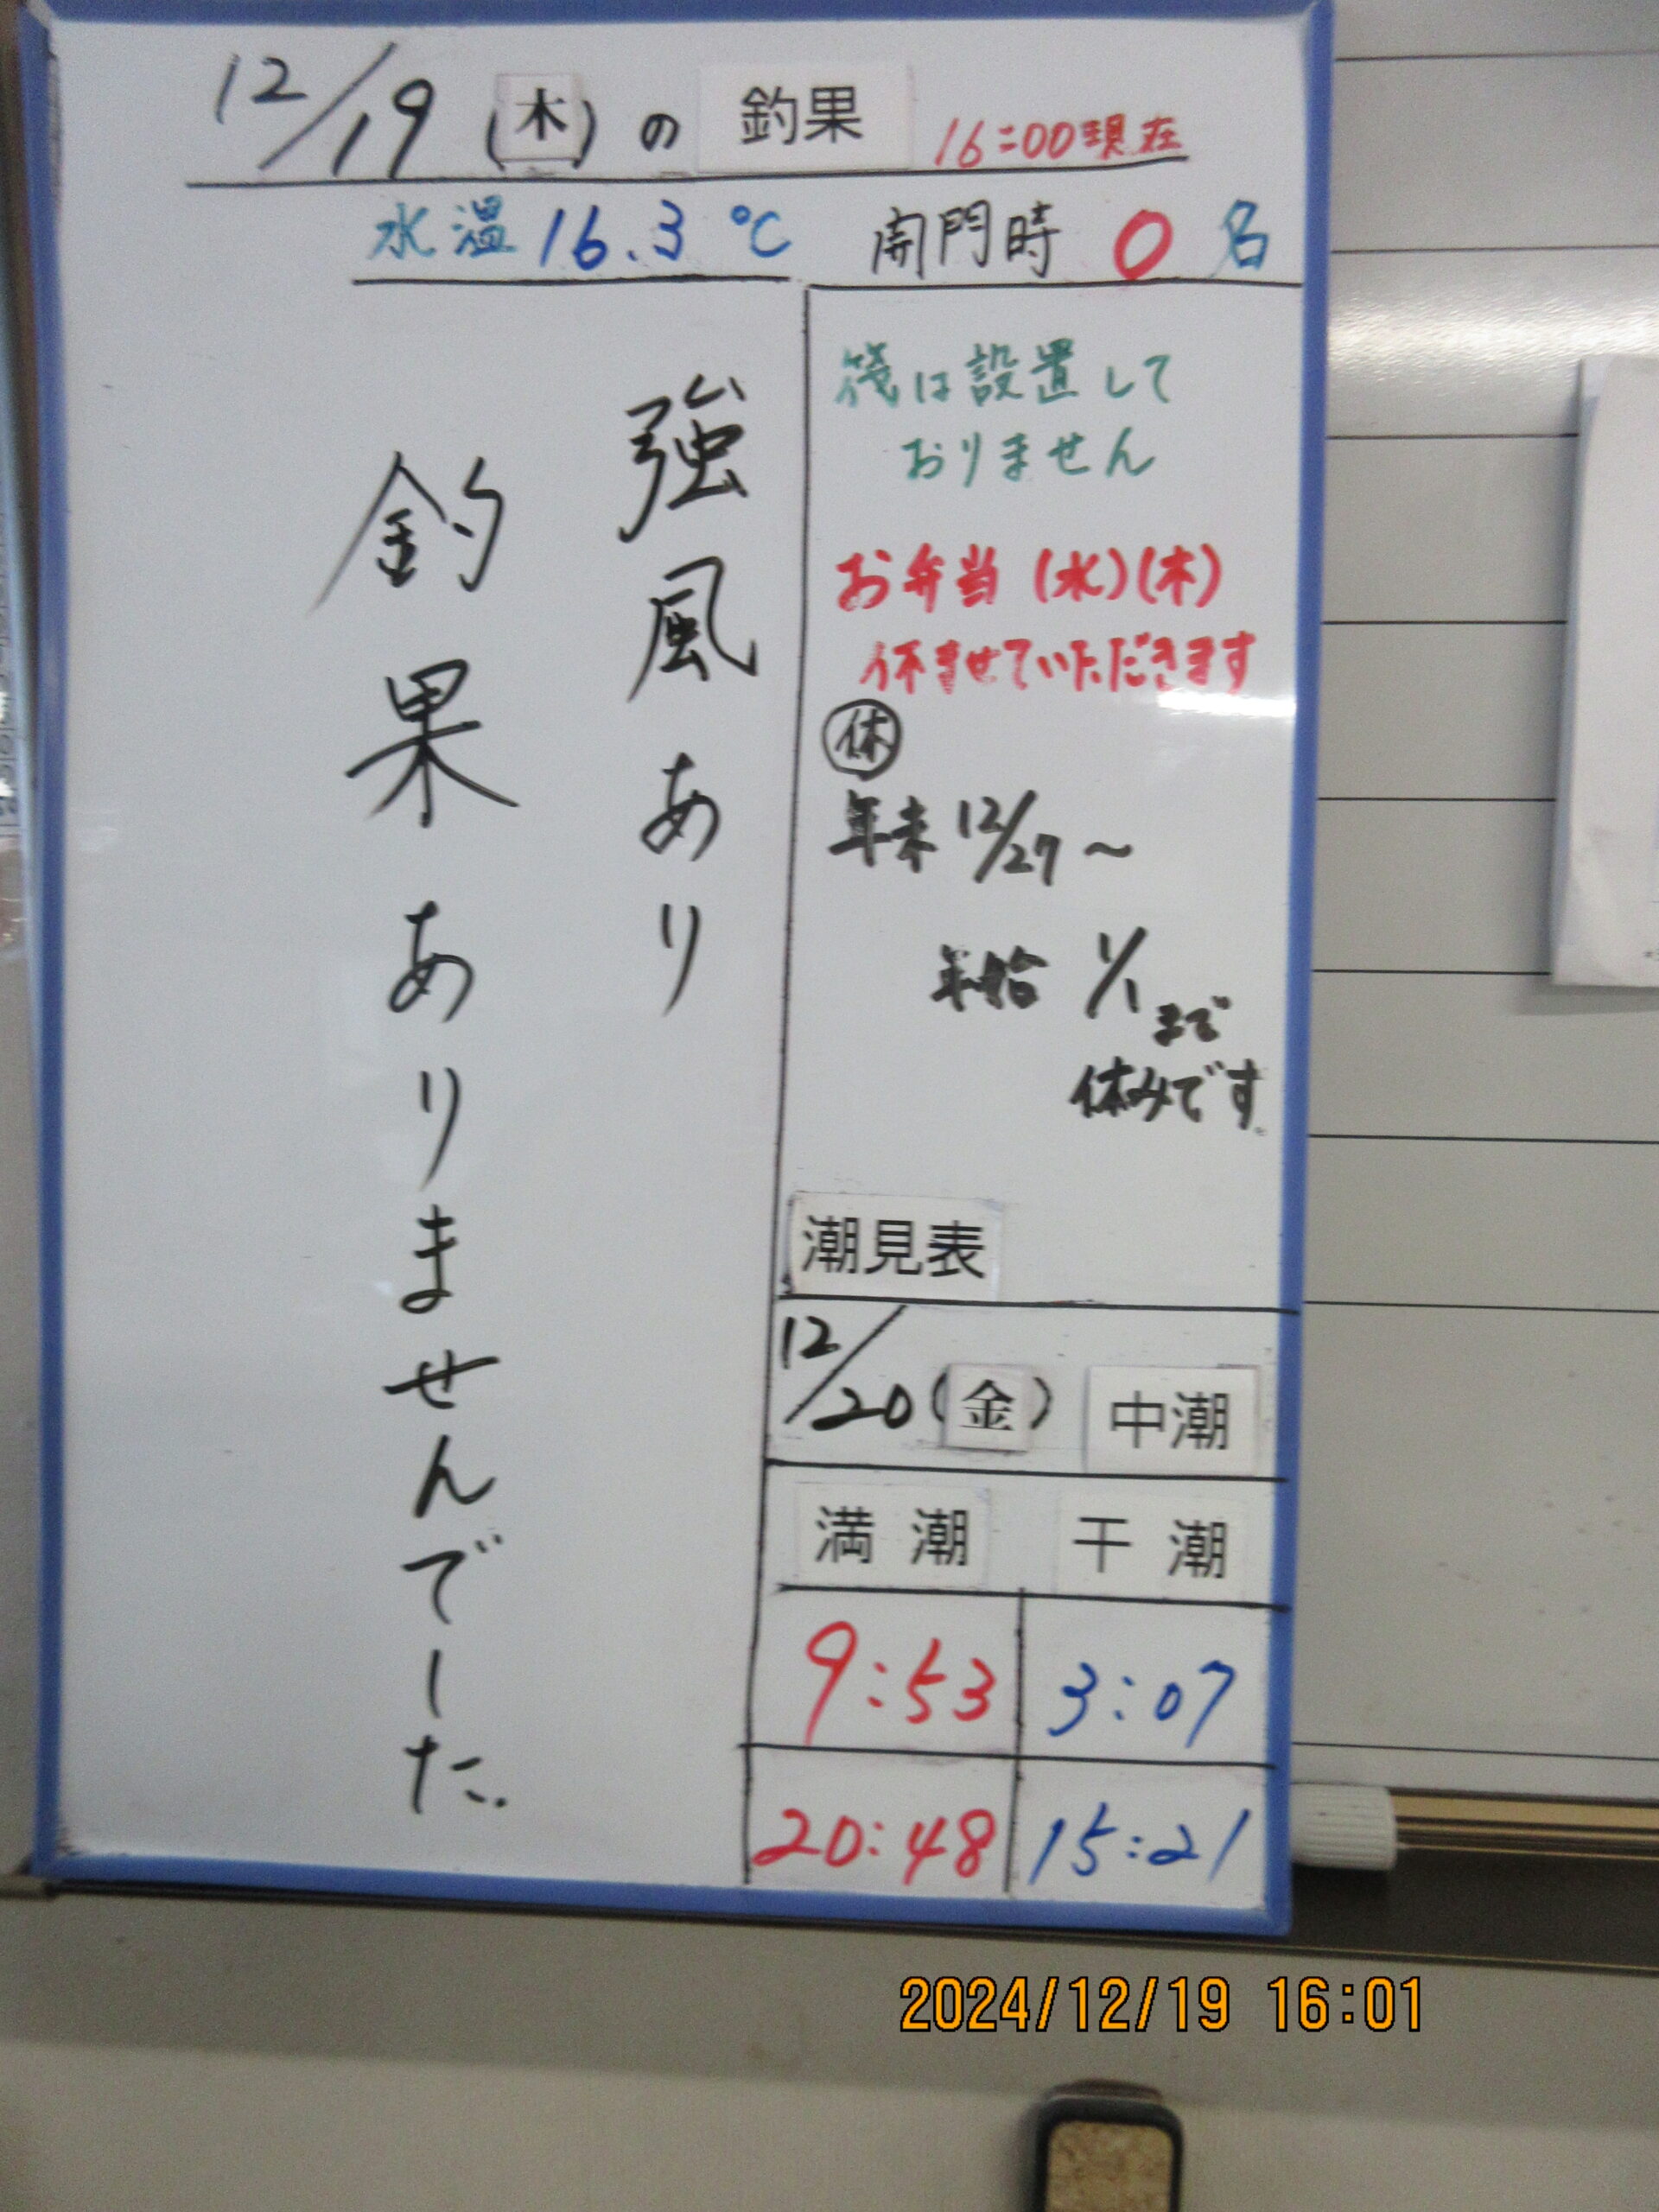 12/19 (木) の 釣果 16:00現在
水温 16.3 ℃ 開門時 0 名
強風あり
釣果ありませんでした.
筏は設置して
おりません
お弁当 (水)(木)
休ませていただきます
休
年末 12/27 ～
年始 1/1 まで
休みです。
潮見表
12/20 (金) 中潮
満潮 干潮
9:53 3:07
20:48 15:21
2024/12/19 16:01